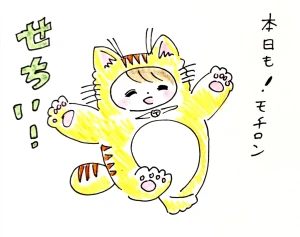 本日も!モチロン
せちい!!